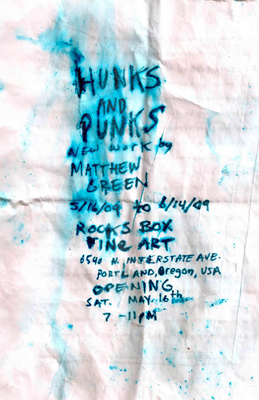 HUNKS
AND
PUNKS
NEW WORK by
MATTHEW
GREEN
5/16/09 to 6/14/09
ROCKS BOX
FINE ART
6540 N. INTERSTATE AVE.
PORTLAND, Oregon, USA
OPENING
SAT. MAY 16th
7-11PM